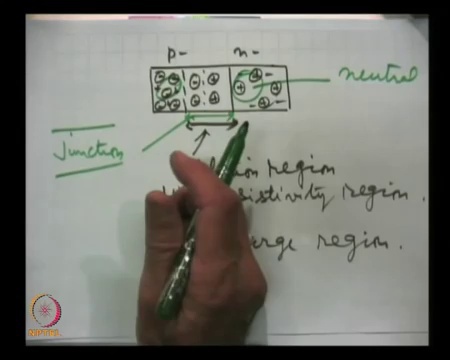 p- n-
neutral
Junction
region
sistivity region.
region.
NPTEL